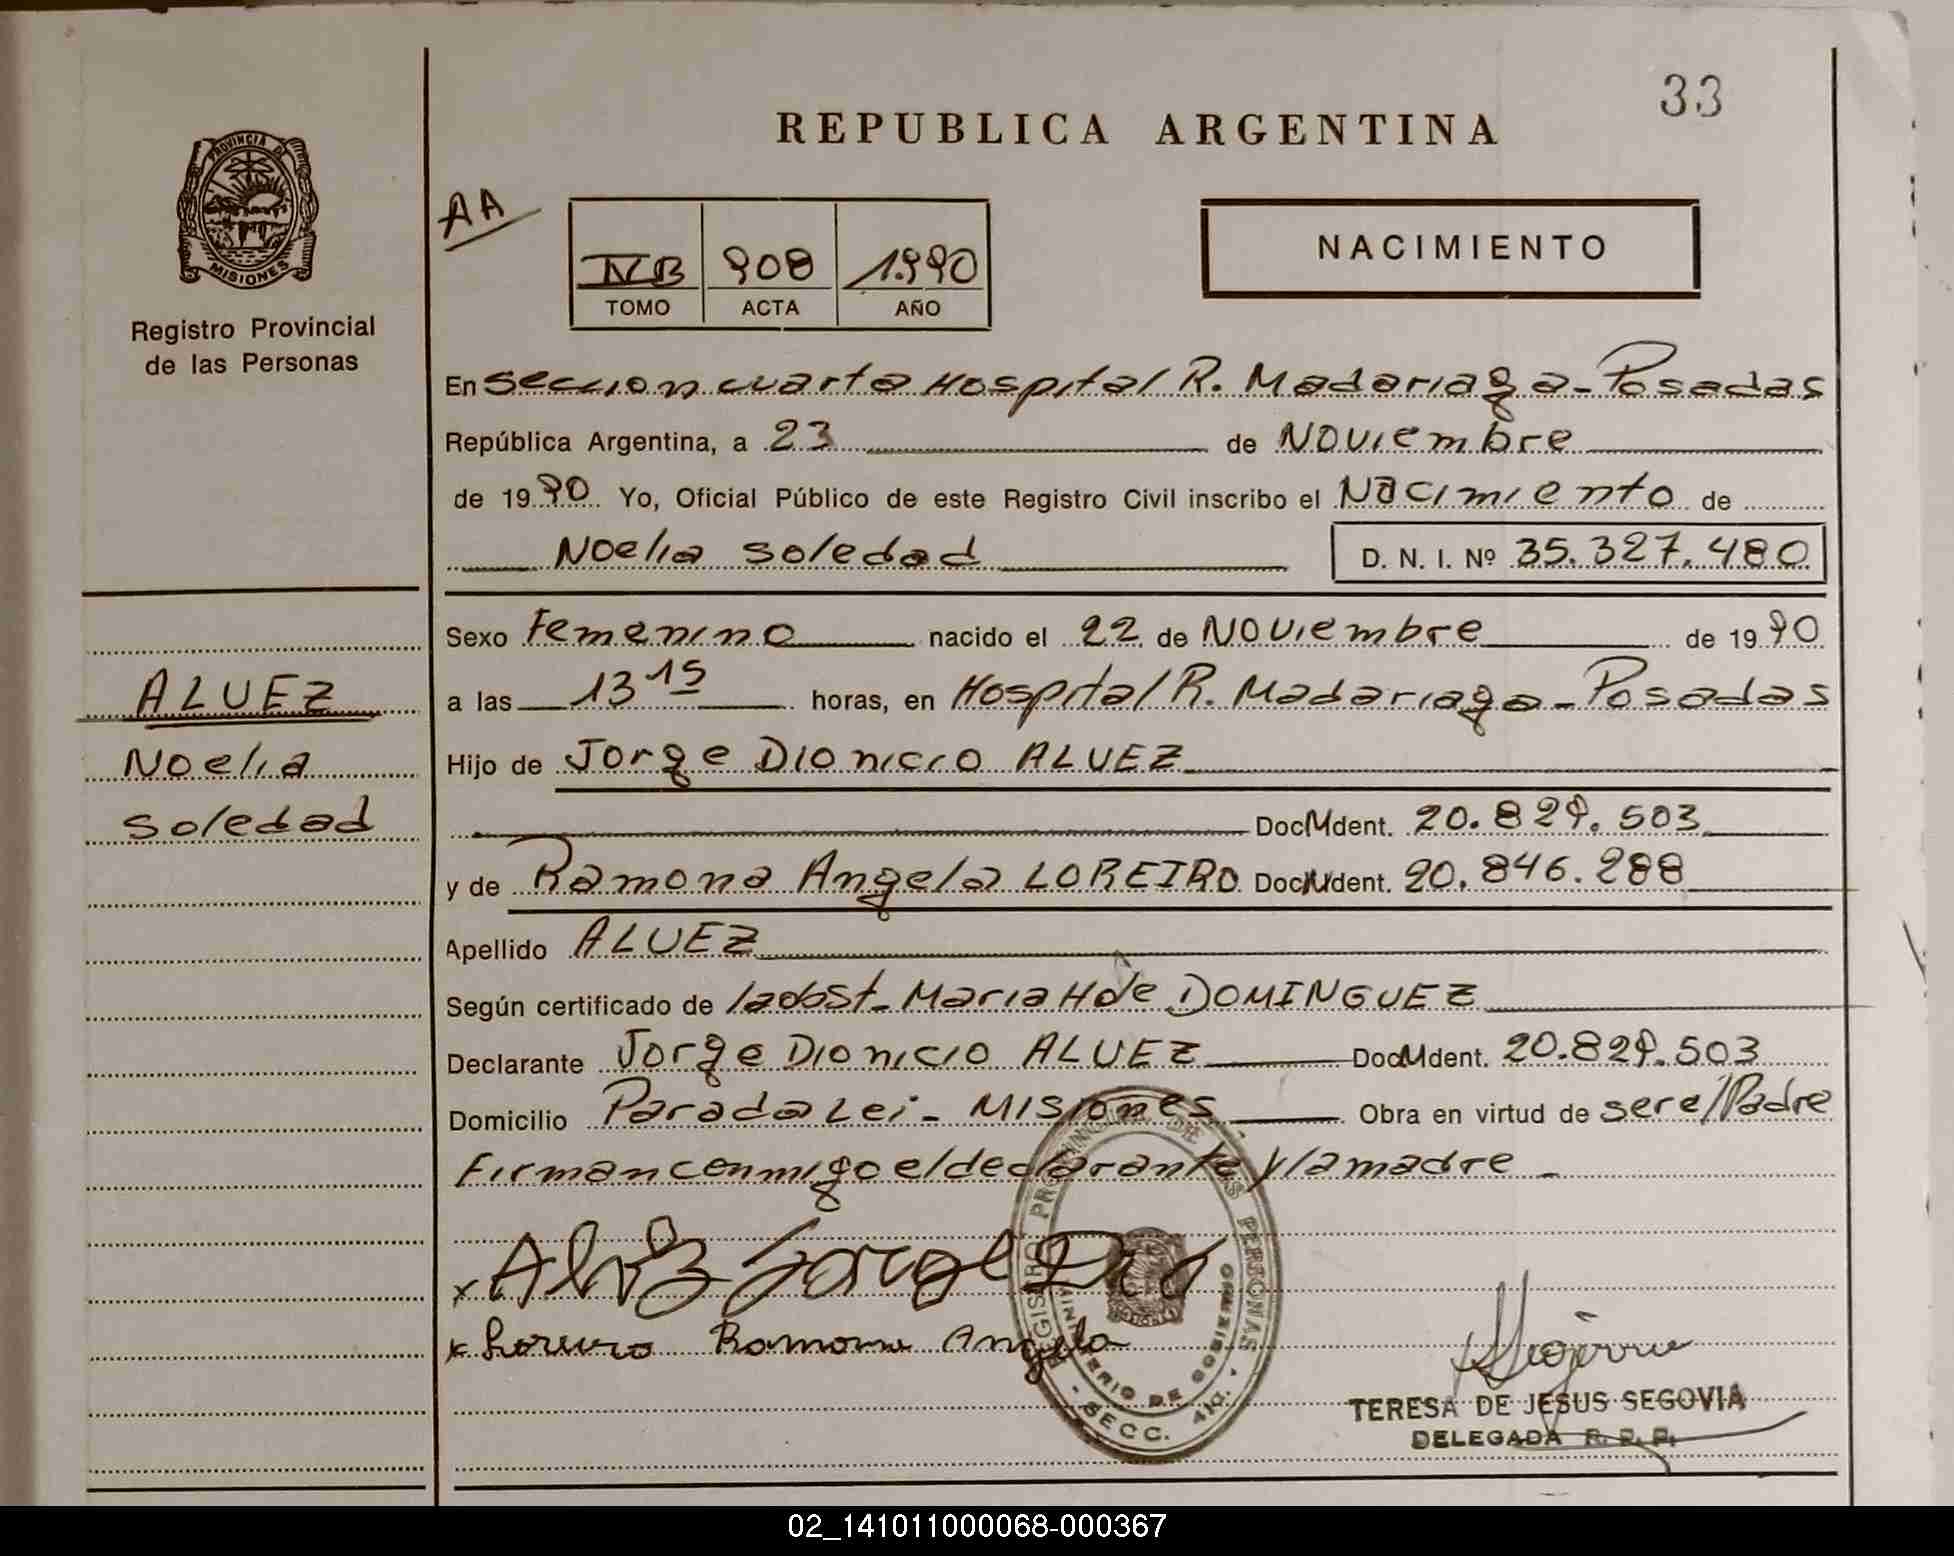 33
REPUBLICA ARGENTINA
PROVINCIA DE
MISIONES
Registro Provincial
de las Personas
AA
IV B 908 1.990
TOMO ACTA AÑO
NACIMIENTO
En Seccion cuarta Hospital R. Madariaga - Posadas
República Argentina, a 23 de Noviembre
de 1990 Yo, Oficial Público de este Registro Civil inscribo el Nacimiento de
Noelia Soledad D. N. I. Nº 35.327.480
Sexo Femenino nacido el 22 de Noviembre de 1990
ALUEZ
Noelia
Soledad
a las 13 15 horas, en Hospital R. Madariaga - Posadas
Hijo de Jorge Dionicio ALUEZ
Doc. Ident. 20.829.503
y de Ramona Angela LOREIRO Doc. Ident. 20.846.288
Apellido ALUEZ
Según certificado de la obst. Maria H de DOMINGUEZ
Declarante Jorge Dionicio ALUEZ Doc. Ident. 20.829.503
Domicilio Parada Lei - Misiones Obra en virtud de ser el Padre
Firman conmigo el declarante y la madre -
REGISTRO PROVINCIAL DE LAS PERSONAS
MINISTERIO DE GOBIERNO
SECC. 4ta.
x Jorge
x Ramona Angela
TERESA DE JESUS SEGOVIA
DELEGADA R. P. P.
02_141011000068-000367